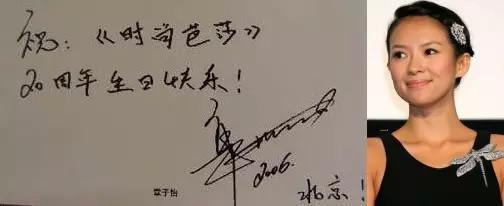 祝：《时尚芭莎》
20周年生日快乐！
2006.
章子怡
北京！